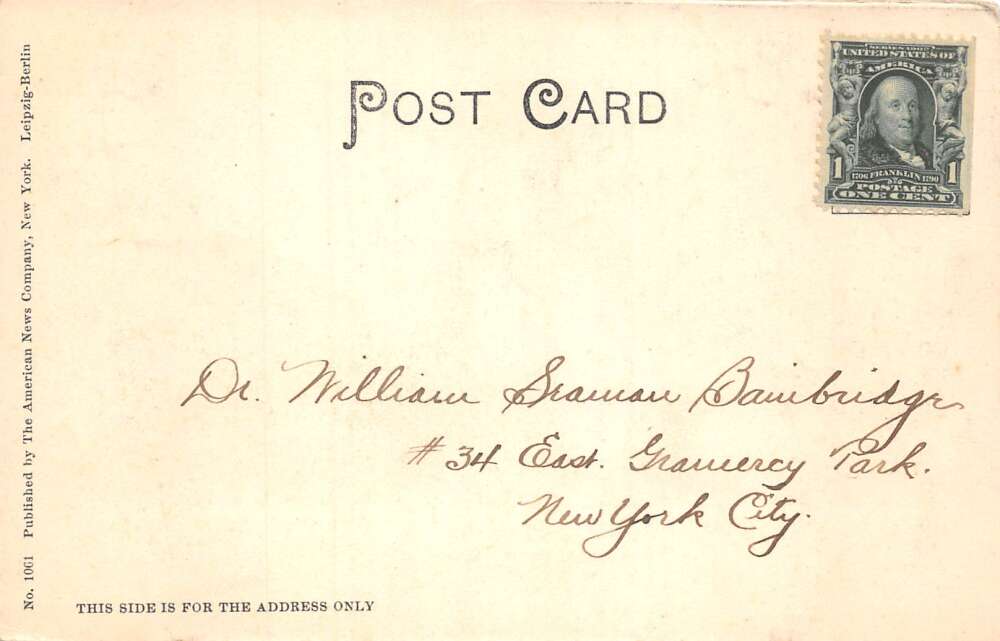 POST CARD
SERIES 1902
UNITED STATES OF
AMERICA
1 1
1706 FRANKLIN 1790
POSTAGE
ONE CENT
Dr. William Seaman Bainbridge
# 34 East. Gramercy Park.
New York City.
THIS SIDE IS FOR THE ADDRESS ONLY
No. 1061 Published by The American News Company, New York. Leipzig-Berlin